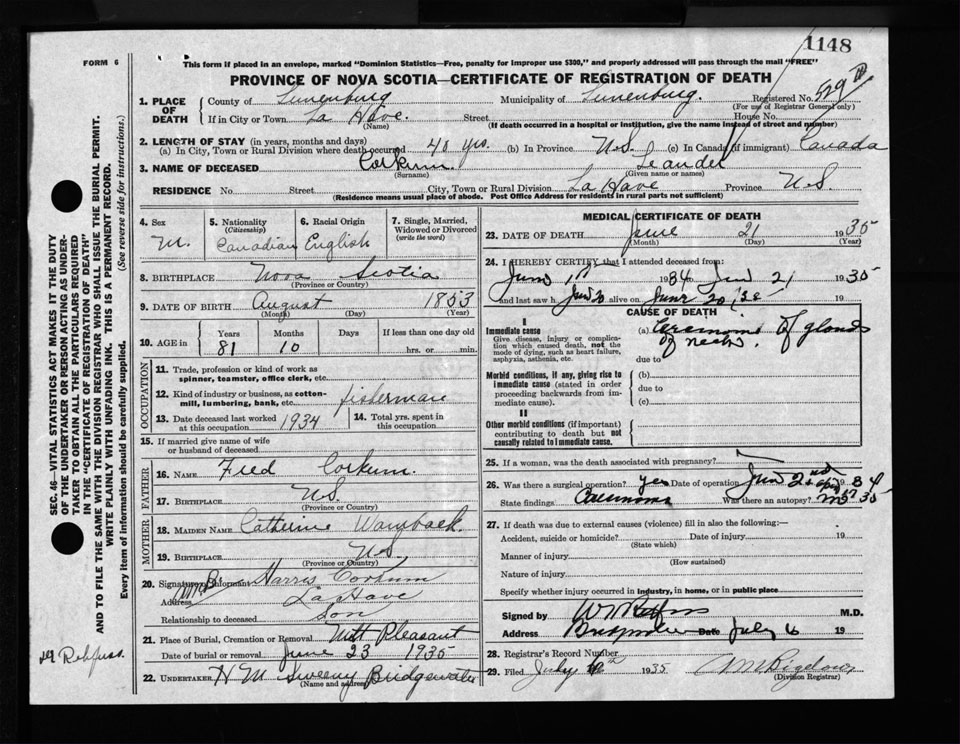 1148
FORM 6
This form if placed in an envelope, marked "Dominion Statistics—Free, penalty for improper use $300," and properly addressed will pass through the mail "FREE"
PROVINCE OF NOVA SCOTIA—CERTIFICATE OF REGISTRATION OF DEATH
1. PLACE OF DEATH County of Lunenburg Municipality of Lunenburg. Registered No. 529
(For use of Registrar General only)
If in City or Town La Have. Street House No.
(Name) (If death occurred in a hospital or institution, give the name instead of street and number)
2. LENGTH OF STAY (in years, months and days)
(a) In City, Town or Rural Division where death occurred 40 yrs. (b) In Province N.S. (c) In Canada (if immigrant) Canada
3. NAME OF DECEASED Corkum. Leander
(Surname) (Given name or names)
RESIDENCE No. Street City, Town or Rural Division La Have Province N.S.
(Residence means usual place of abode. Post Office Address for residents in rural parts not sufficient)
4. Sex M.
5. Nationality (Citizenship) Canadian
6. Racial Origin English
7. Single, Married, Widowed or Divorced (write the word)
8. BIRTHPLACE Nova Scotia
(Province or Country)
9. DATE OF BIRTH August 1853
(Month) (Day) (Year)
10. AGE in Years 81 Months 10 Days If less than one day old
hrs. or min.
OCCUPATION
11. Trade, profession or kind of work as spinner, teamster, office clerk, etc.
12. Kind of industry or business, as cotton-mill, lumbering, bank, etc. fisherman
13. Date deceased last worked at this occupation 1934
14. Total yrs. spent in this occupation
15. If married give name of wife or husband of deceased
FATHER
16. NAME Fred Corkum.
17. BIRTHPLACE N.S.
(Province or Country)
MOTHER
18. MAIDEN NAME Catherine Wamback.
19. BIRTHPLACE N.S.
(Province or Country)
20. Signature of Informant Harris Corkum
Address La Have
Relationship to deceased Son
21. Place of Burial, Cremation or Removal Mtt Pleasant
Date of burial or removal June 23 1935
22. UNDERTAKER H M Sweeny Bridgewater
(Name and address)
MEDICAL CERTIFICATE OF DEATH
23. DATE OF DEATH June 21 1935
(Month) (Day) (Year)
24. I HEREBY CERTIFY that I attended deceased from:
June 1st 1934 Jun 21 1935
and last saw h alive on June 20 19
CAUSE OF DEATH
I
Immediate cause
Give disease, injury or complication which caused death, not the mode of dying, such as heart failure, asphyxia, asthenia, etc.
(a) Carcinoma of glands
of neck.
due to
Morbid conditions, if any, giving rise to immediate cause (stated in order proceeding backwards from immediate cause).
(b)
due to
(c)
II
Other morbid conditions (if important) contributing to death but not causally related to immediate cause.
25. If a woman, was the death associated with pregnancy?
26. Was there a surgical operation? yes Date of operation Jun 2nd 1934
State findings Carcinoma Was there an autopsy?
27. If death was due to external causes (violence) fill in also the following:—
Accident, suicide or homicide? Date of injury 19
(State which)
Manner of injury
(How sustained)
Nature of injury
Specify whether injury occurred in industry, in home, or in public place
Signed by M.D.
Address Date July 6 19
28. Registrar's Record Number
29. Filed July 1935 A M Bigelow
(Division Registrar)
SEC. 46—VITAL STATISTICS ACT MAKES IT THE DUTY
OF THE UNDERTAKER OR PERSON ACTING AS UNDERTAKER TO OBTAIN ALL THE PARTICULARS REQUIRED
IN THE "CERTIFICATE OF REGISTRATION OF DEATH"
AND TO FILE THE SAME WITH THE DIVISION REGISTRAR WHO SHALL ISSUE THE BURIAL PERMIT.
WRITE PLAINLY WITH UNFADING INK. THIS IS A PERMANENT RECORD.
Every item of information should be carefully supplied. (See reverse side for instructions.)
Rehfuss.